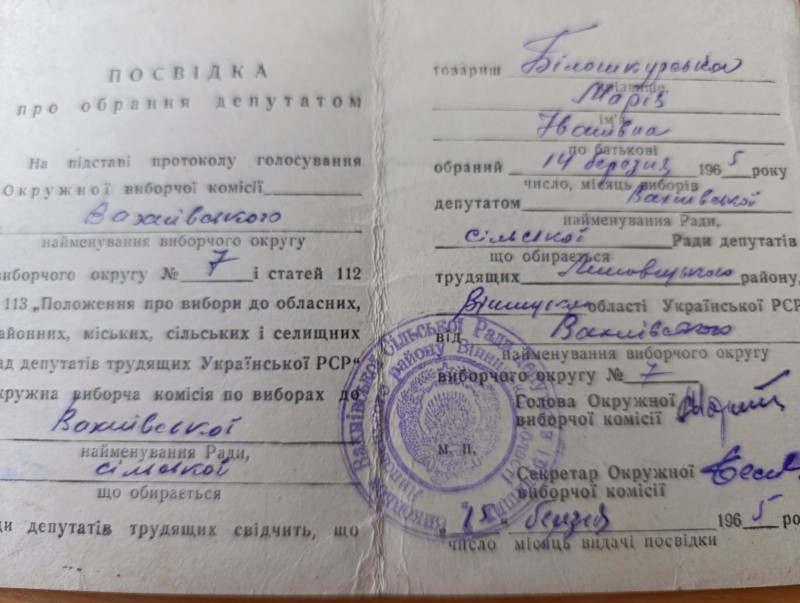 ПОСВІДКА
про обрання депутатом
На підставі протоколу голосування
Окружної виборчої комісії
Вахнівського
найменування виборчого округу
виборчого округу № 7 і статей 112
113 „Положення про вибори до обласних,
районних, міських, сільських і селищних
ад депутатів трудящих Української РСР“
кружна виборча комісія по виборах до
Вахнівської
найменування Ради,
сільської
що обирається
ди депутатів трудящих свідчить, що
товариш Білошкурська
прізвище,
Марія
ім'я
Іванівна
по батькові
обраний 14 березня 1965 року
число, місяць виборів
депутатом Вахнівської
найменування Ради,
сільської Ради депутатів
що обирається
трудящих Липовецького району,
області Української РСР
від Вахнівського
найменування виборчого округу
виборчого округу № 7
Голова Окружної
виборчої комісії
м. п.
Секретар Окружної
виборчої комісії
„15“ березня 1965 ро
число місяць видачі посвідки
Вахнівської Сільської Ради
району Вінницької області